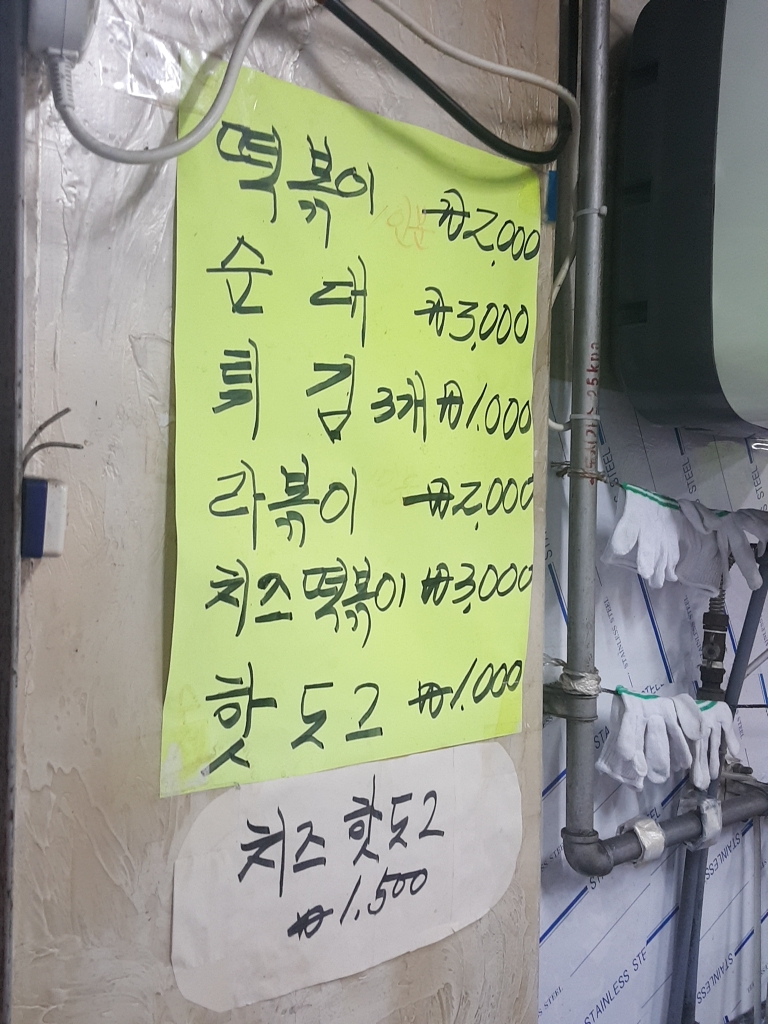 떡볶이 ₩2,000
순대 ₩3,000
튀김 3개 ₩1,000
라볶이 ₩2,000
치즈떡볶이 ₩3,000
핫도그 ₩1,000
치즈 핫도그
₩1.500
STAINLESS STEEL
STAINLESS STE